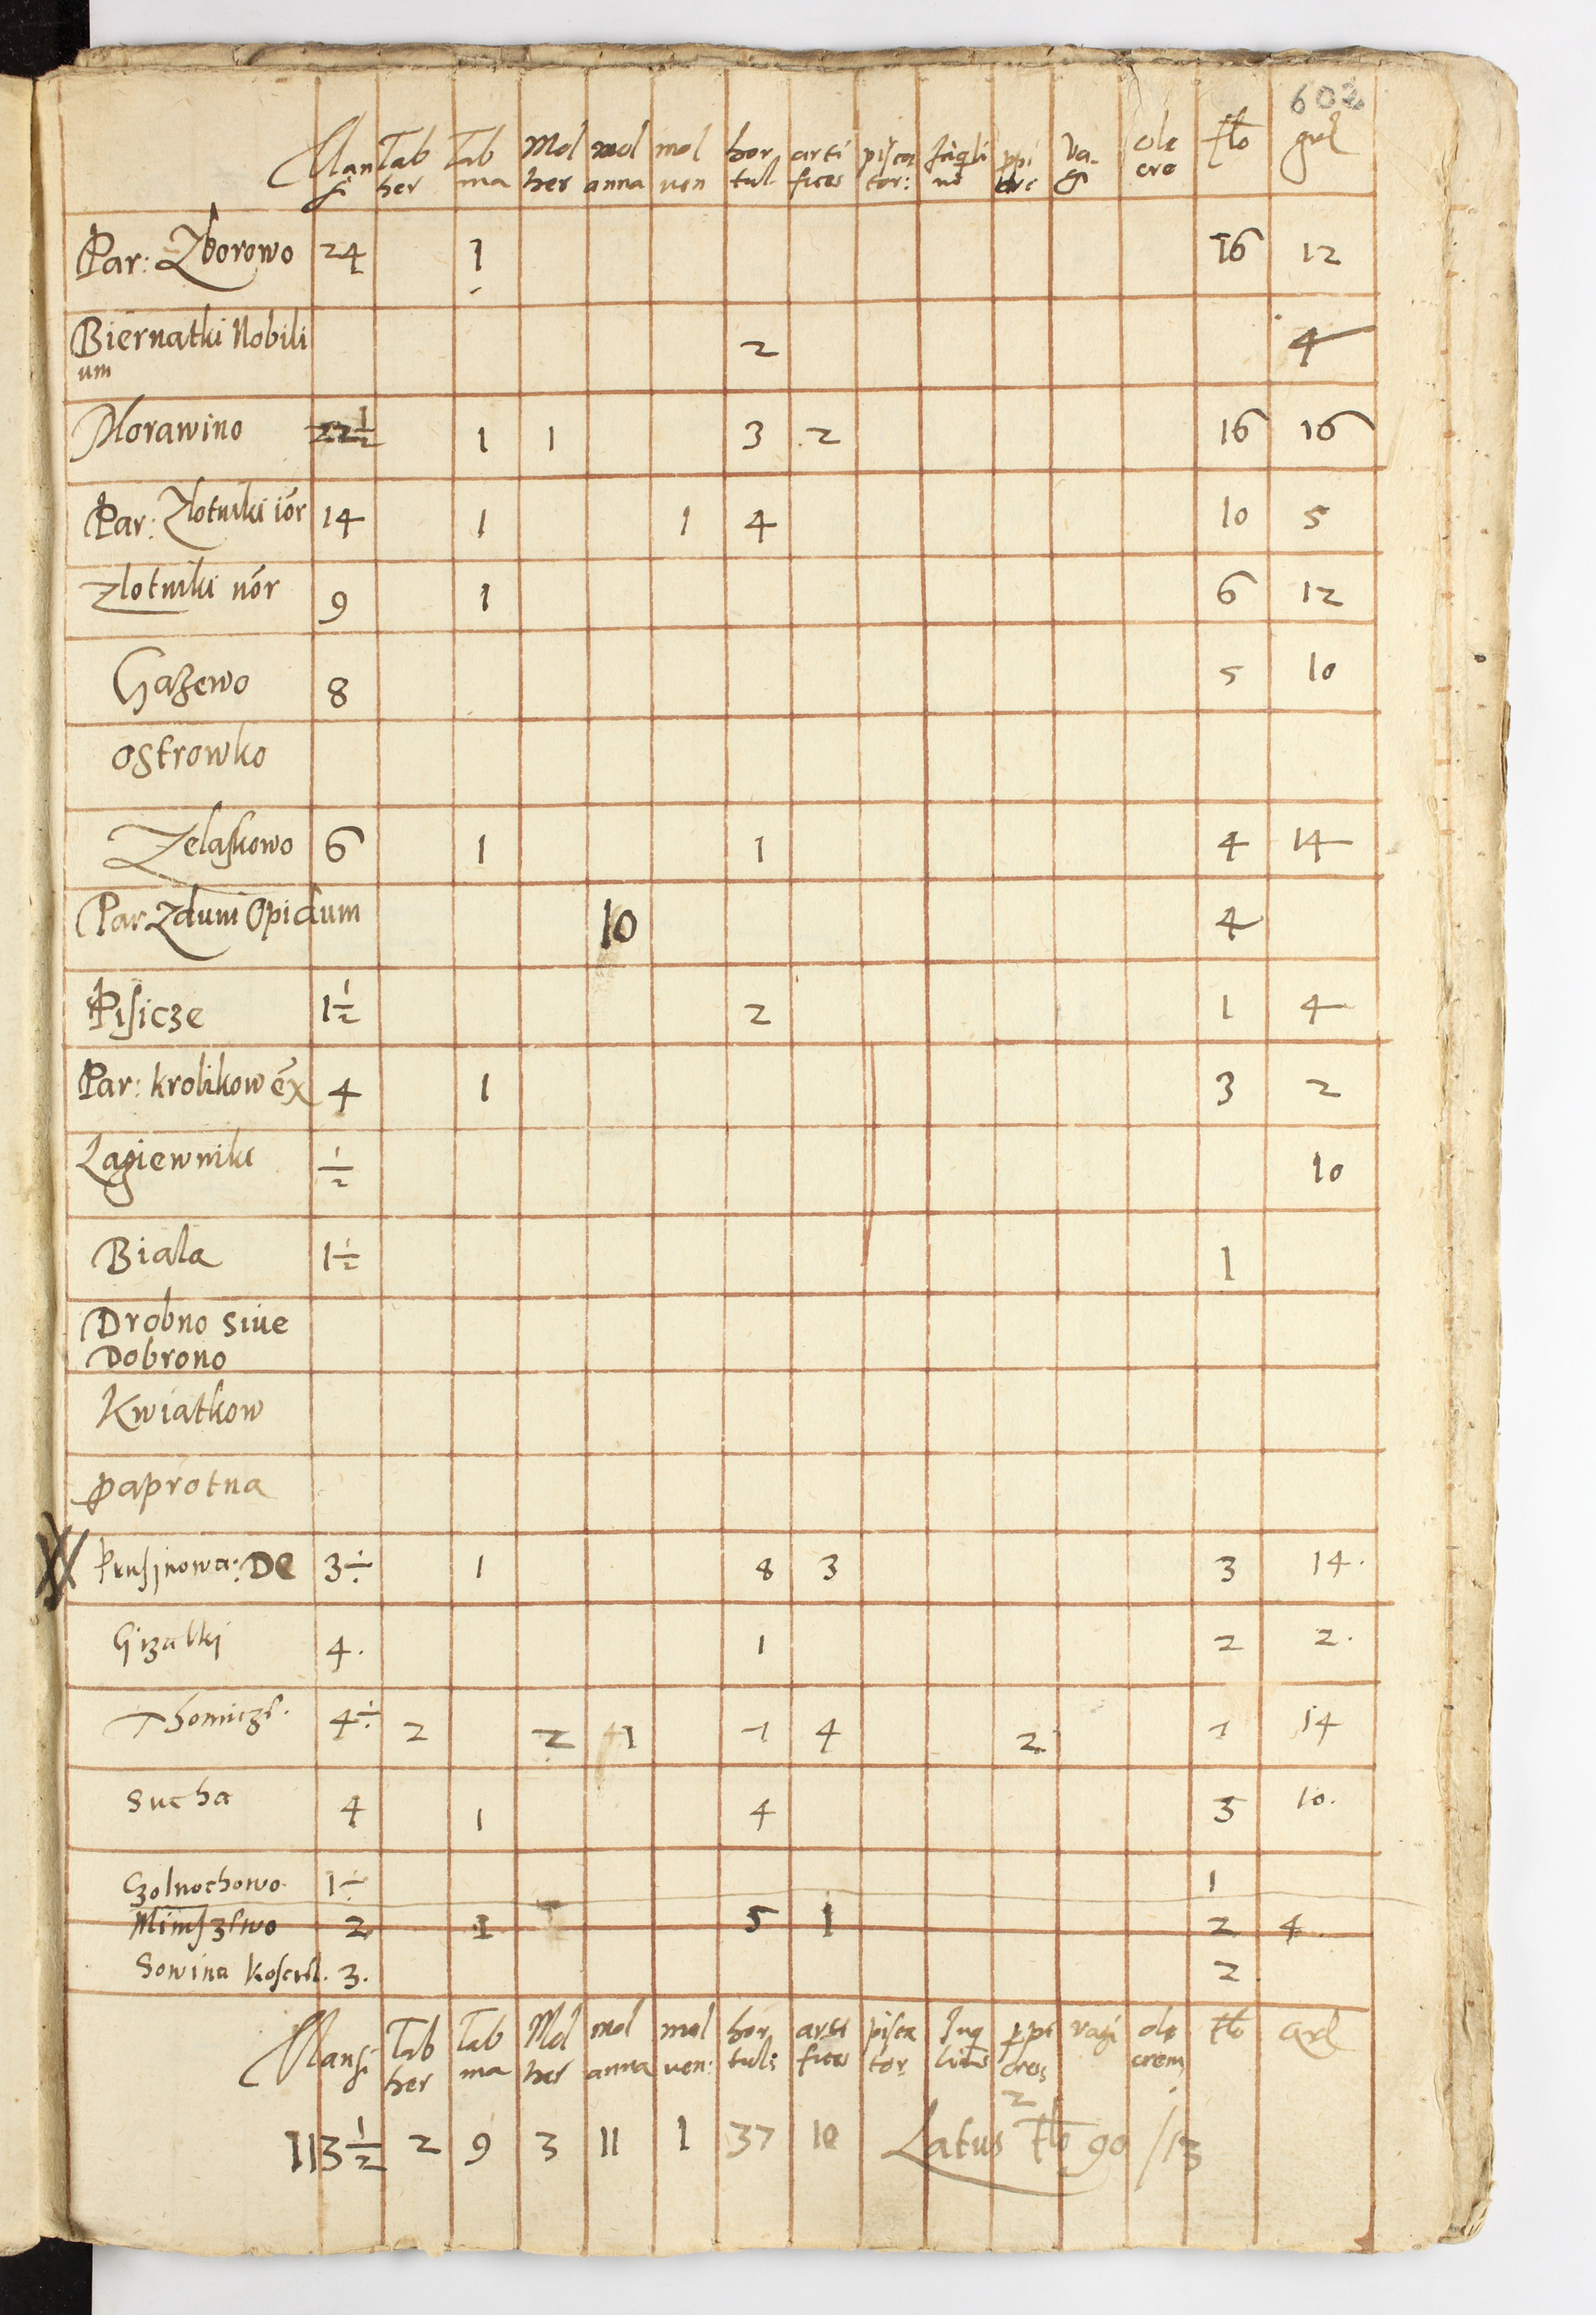 602
Mansi Tab her Tab ma Mol her mol anna mol ven hor tul arti fices piscator: Inquili ni ppi Va-gi ole flo grl
Par: Zborowo 24 1 16 12
Biernatki Nobili 2 4
um
Morawino 22 1/2 1 1 3 2 16 16
Par: Zlotniki iór 14 1 1 4 10 5
Zlotniki nór 9 1 6 12
Gazewo 8 5 10
ostrowko
Zelaskowo 6 1 1 4 14
Par Zduni Opidum 10 4
Pisicze 1 1/2 2 1 4
Par: krolikow éx 4 1 3 2
Lagiewniki 1/2 10
Biala 1 1/2 1
Drobno siue
Dobrono
Kwiatkow
paprotna
Prusinowa: De 3 1 8 3 3 14.
Gizalki 4. 1 2 2.
Thomicze. 4 2 2 1 4 2 14
Sucha 4 1 4 3 10.
Czolnochowo. 1 1
2 1 5 1 2 4.
Sowina 3. 2
Mansi Tab her Tab ma Mol her mol anna mol ven: hor tul: arti fices pisca tor: Inq ppi vagi ole flo grl
113 1/2 2 9 3 11 1 37 10 2 Latus flo 90 / 13